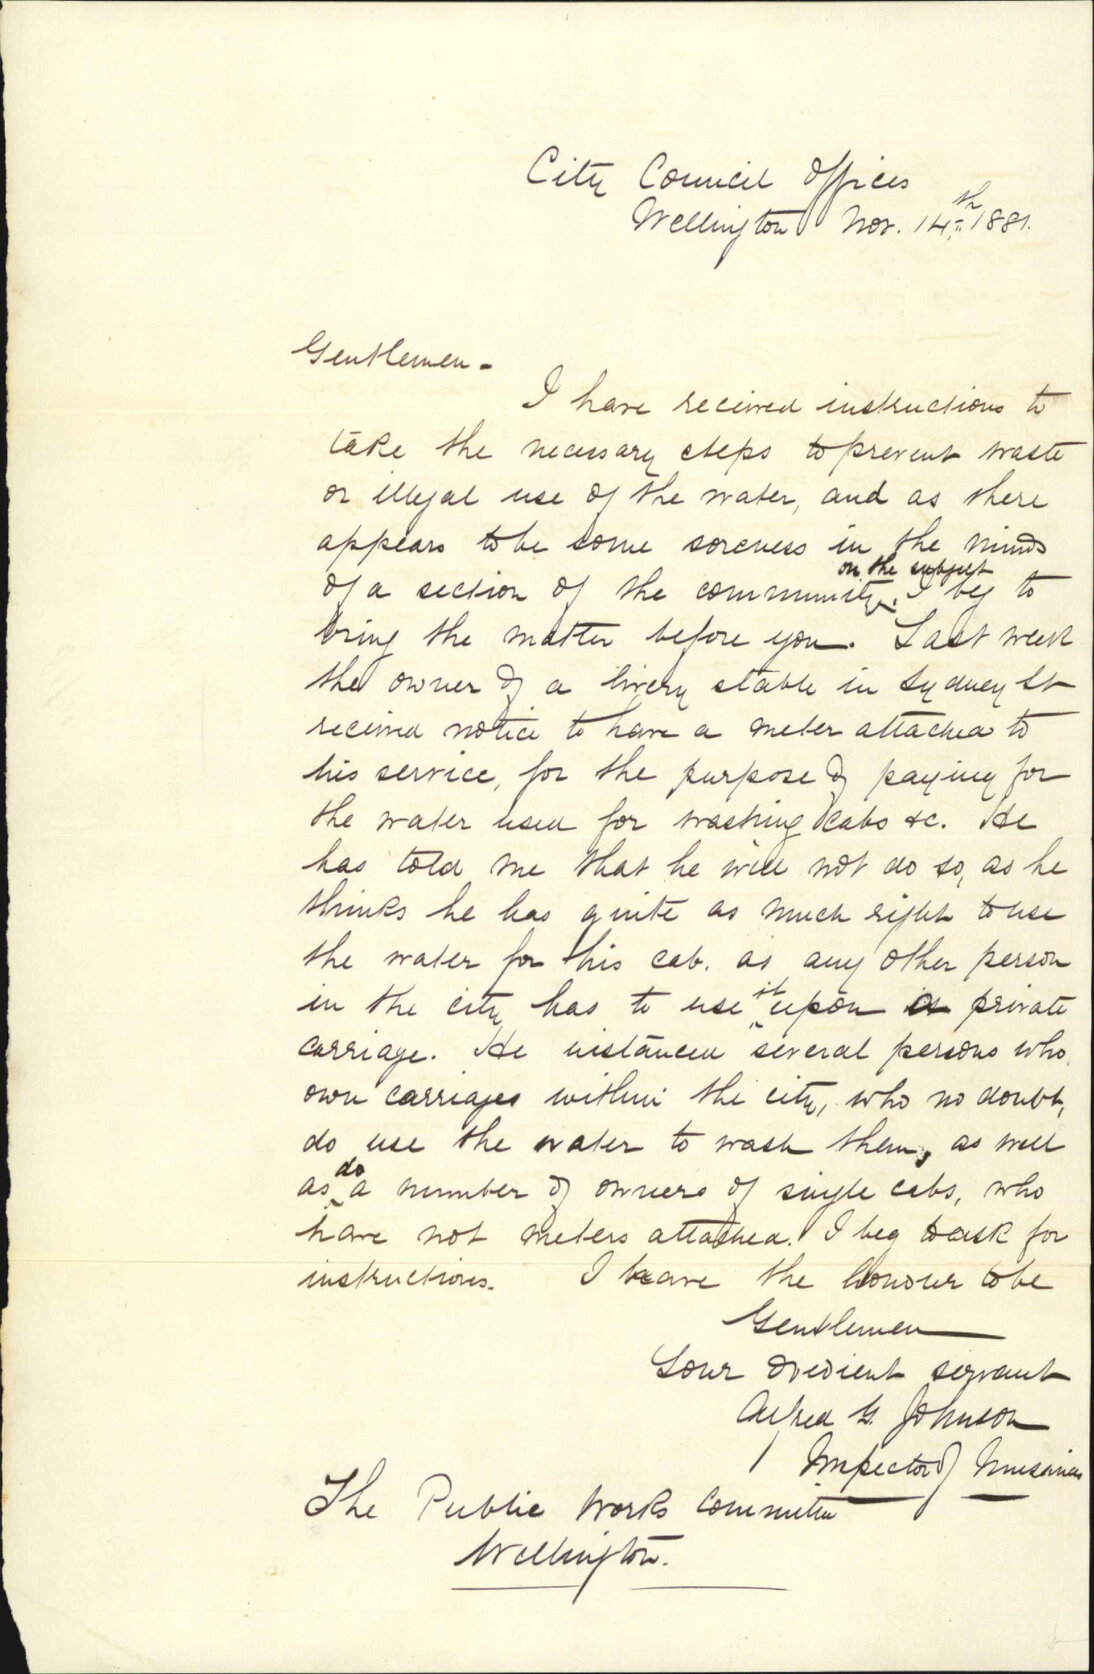 City Council Offices
Wellington Nov. 14th 1881.
Gentlemen -
I have received instructions to
take the necessary steps to prevent waste
or illegal use of the water, and as there
appears to be some soreness in the minds
on the subject
of a section of the community. I beg to
bring the matter before you. Last week
the owner of a livery stable in Sydney St
received notice to have a meter attached to
his service, for the purpose of paying for
the water used for washing cabs &c. He
has told me that he will not do so, as he
thinks he has quite as much right to use
the water for his cab. as any other person
it
in the city has to use upon a private
carriage. He instanced several persons who
own carriages within the city, who no doubt,
do use the water to wash them, as well
do
as a number of owners of single cabs, who
have not meters attached. I beg to ask for
instructions. I have the honour to be
Gentlemen
Your obedient servant
Alfred G. Johnson
Inspector of Nuisances
The Public Works Committee
Wellington.